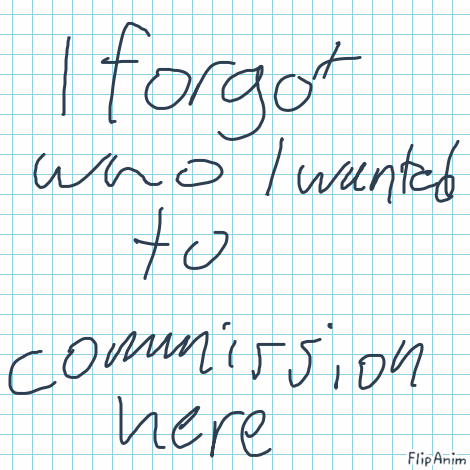 I forgot
who I wanted
to
commission
here
FlipAnim